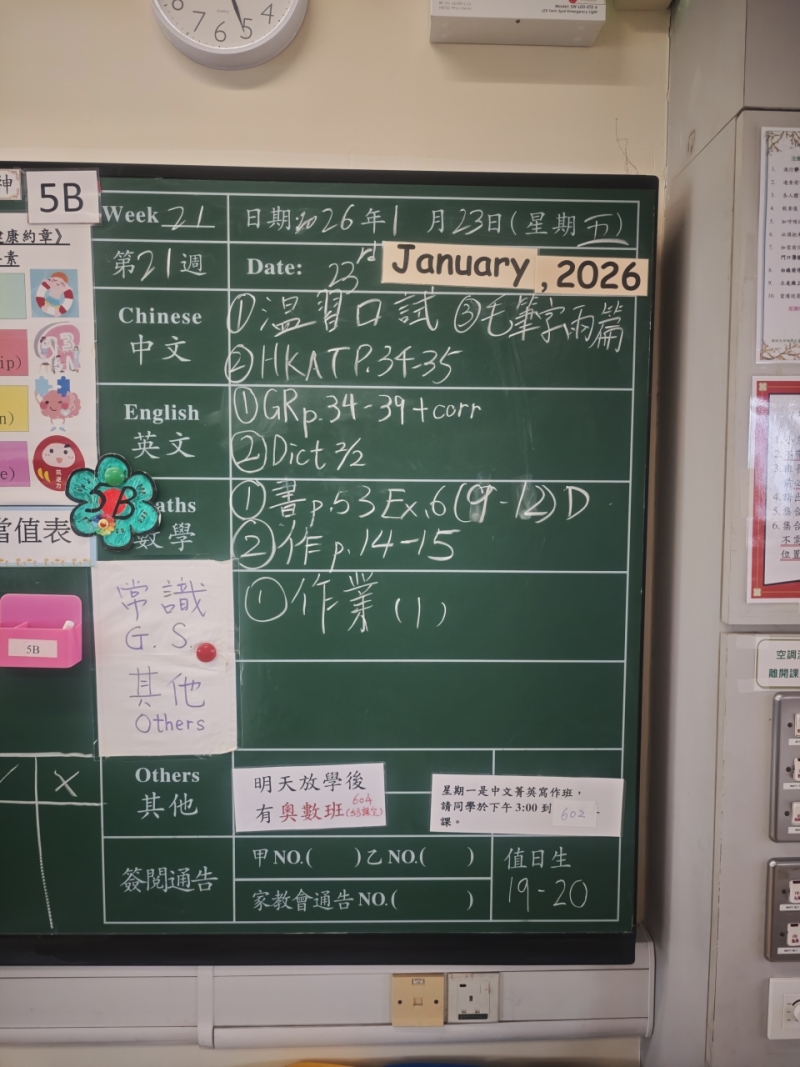 7 6 5 4
5B
Week 21
日期:2026年1月23日(星期五)
第21週
Date: 23rd January, 2026
Chinese
中文
①溫習口試 ③毛筆字兩篇
②HKAT P.34-35
English
英文
①GR p.34-39+corr
②Dict 2/2
5B
數學
①書p.53 Ex.6(9-12)D
②作p.14-15
當值表
常識
G.S.
①作業(1)
5B
其他
Others
Others
其他
明天放學後
有奧數班604
星期一是中文菁英寫作班，
請同學於下午 3:00 到 602
課。
簽閱通告
甲NO.( )乙NO.( )
家教會通告NO.( )
值日生
19-20
空調
離開課